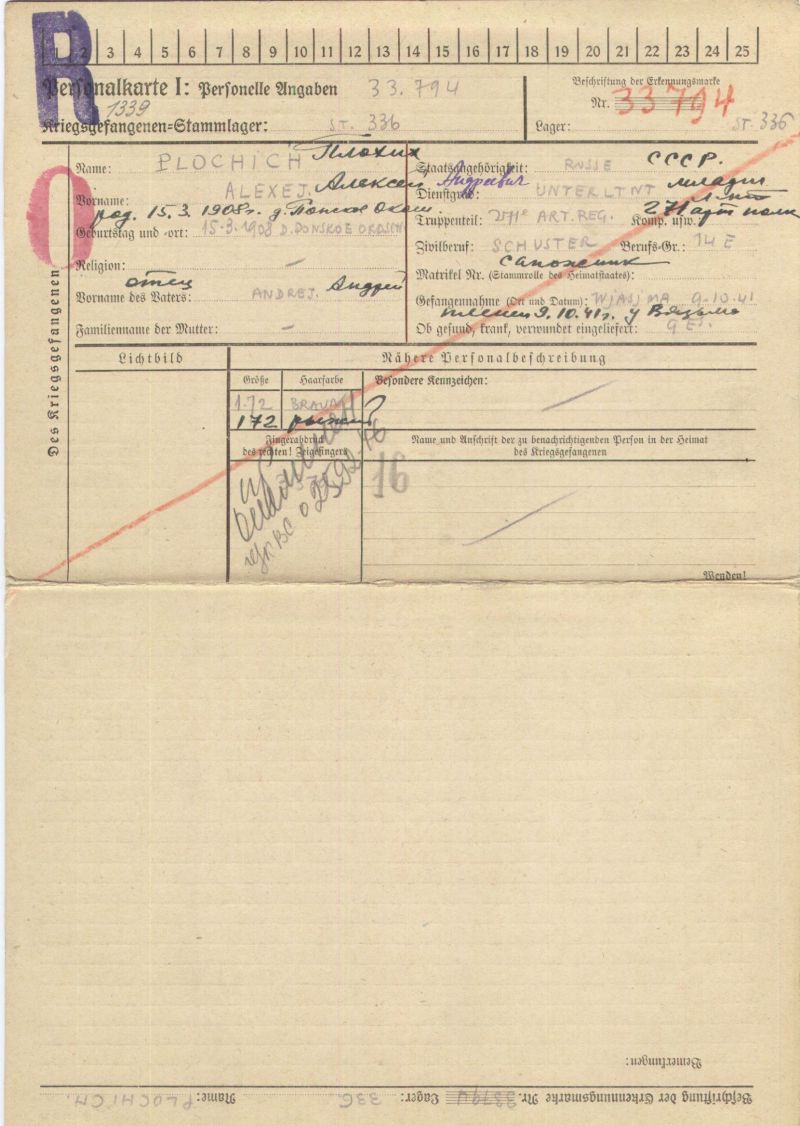 R
1 2 3 4 5 6 7 8 9 10 11 12 13 14 15 16 17 18 19 20 21 22 23 24 25
Personalkarte I: Personelle Angaben 33.794
Beschriftung der Erkennungsmarke
1339
Nr. 33794
Kriegsgefangenen-Stammlager: ST. 336
Lager: ST. 336
Des Kriegsgefangenen
O
Плохих
Name: PLOCHICH
Алексей Андреевич
Vorname: ALEXEJ.
род. 15.3.1908г. д.
Geburtstag und -ort: 15.3.1908 D. DONSKOE
Religion: –
отец Андрей
Vorname des Vaters: ANDREJ.
Familienname der Mutter: –
СССР.
Staatsangehörigkeit: RUSSE
Dienstgrad: UNTERLTNT
271 арт полк
Truppenteil: 271e ART. REG. Komp. usw.
Zivilberuf: SCHUSTER Berufs-Gr.: 14 E
сапожник
Matrikel Nr. (Stammrolle des Heimatstaates):
Gefangennahme (Ort und Datum): WJASJMA 9.10.41
пленен 9.10.41г. у Вязьмы
Ob gesund, krank, verwundet eingeliefert: GES.
Lichtbild
Nähere Personalbeschreibung
Größe Haarfarbe Besondere Kennzeichen:
1.72 BRAUN
172
Fingerabdruck
des rechten! Zeigefingers
Name und Anschrift der zu benachrichtigenden Person in der Heimat
des Kriegsgefangenen
16
Wenden!
Bemerkungen:
Beschriftung der Erkennungsmarke Nr. 33794 Lager: 336. Name: PLOCHICH.